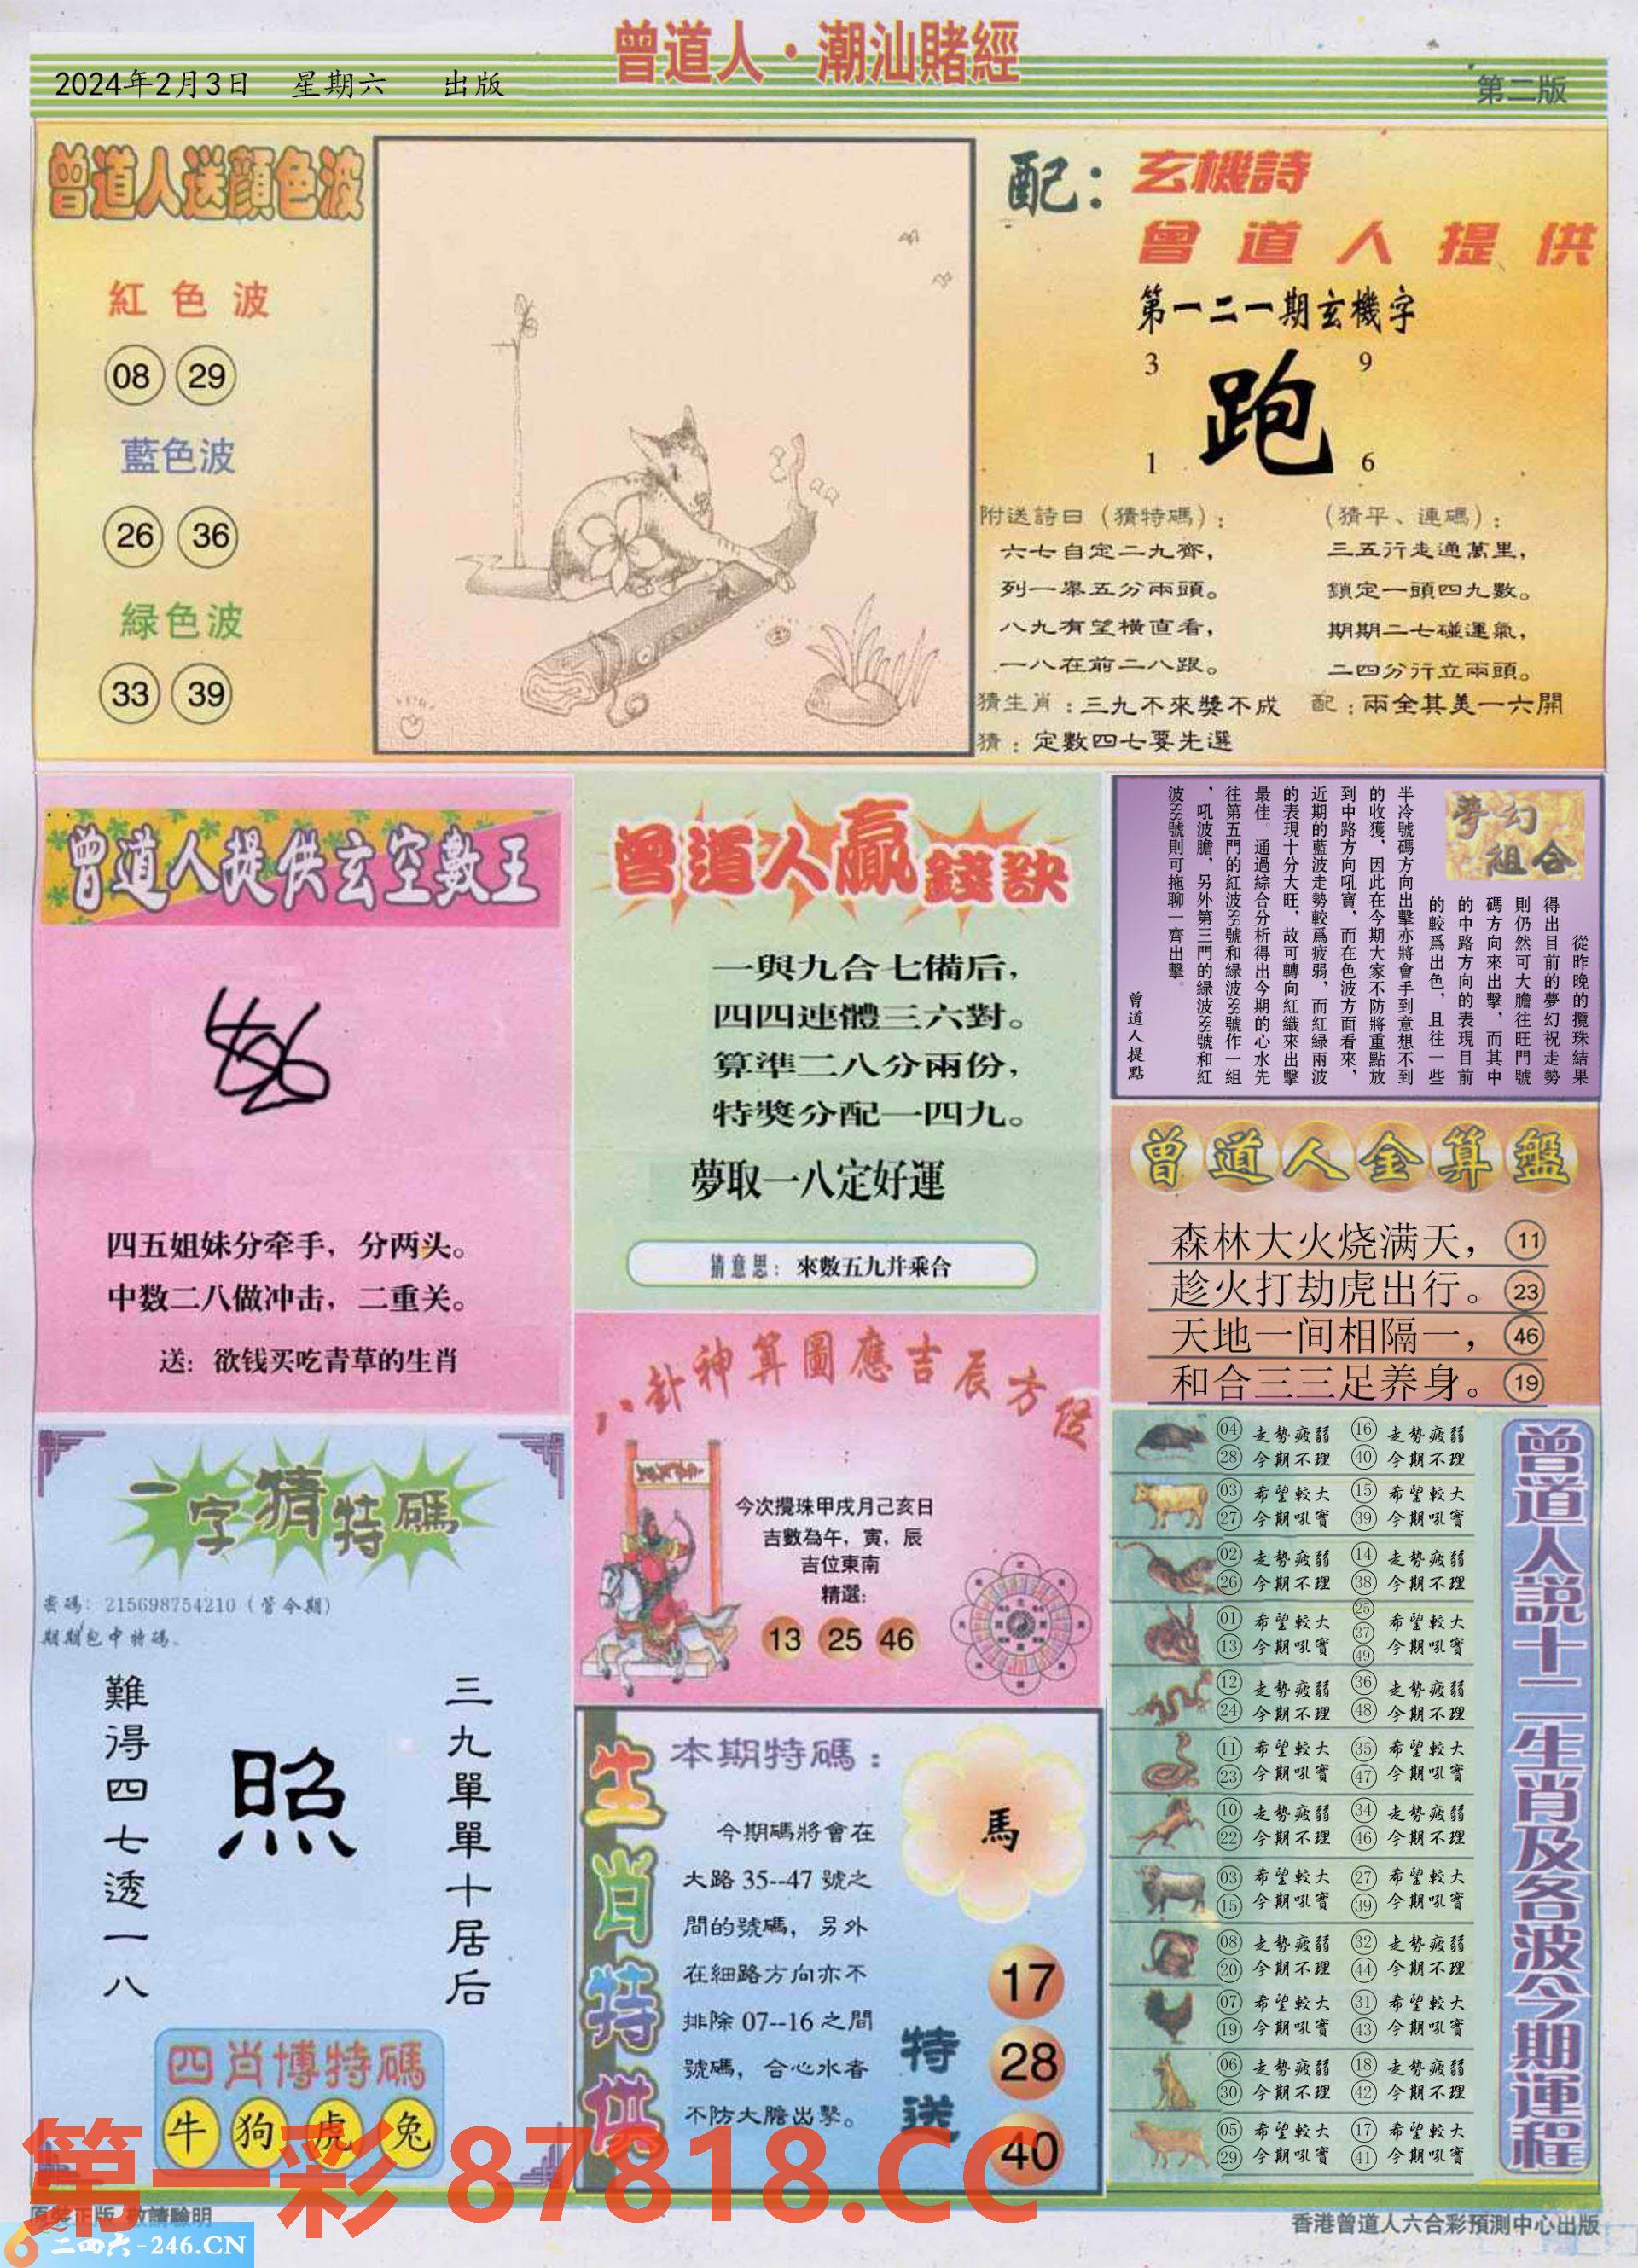 曾道人·潮汕賭經
2024年2月3日 星期六 出版
第二版
曾道人送顔色波
紅色波
08 29
藍色波
26 36
緑色波
33 39
配：玄機詩
曾道人提供
第一二一期玄機字
3 9
跑
1 6
附送詩曰（猜特碼）：
六七自定二九齊，
列一舉五分兩頭。
八九有望橫直看，
一八在前二八跟。
（猜平、連碼）：
三五行走通萬里，
鎖定一頭四九數。
期期二七碰運氣，
二四分行立兩頭。
猜生肖：三九不來獎不成 配：兩全其美一六開
猜：定數四七要先選
曾道人提供玄空數王
四五姐妹分牵手，分两头。
中数二八做冲击，二重关。
送：欲钱买吃青草的生肖
曾道人贏錢訣
一與九合七備后，
四四連體三六對。
算準二八分兩份，
特獎分配一四九。
夢取一八定好運
猜意思：來數五九并乘合
夢幻
組合
從昨晚的攬珠結果
得出目前的夢幻祝走勢
則仍然可大膽往旺門號
碼方向來出擊，而其中
的中路方向的表現目前
的較爲出色，且往一些
半冷號碼方向出擊亦將會手到意想不到
的收獲，因此在今期大家不防將重點放
到中路方向吼寶，而在色波方面看來，
近期的藍波走勢較爲疲弱，而紅緑兩波
的表現十分大旺，故可轉向紅織來出擊
最佳。通過綜合分析得出今期的心水先
往第五門的紅波88號和緑波88號作一組
，吼波膽，另外第三門的緑波88號和紅
波88號則可拖聊一齊出擊。
曾道人提點
曾道人金算盤
森林大火烧满天， 11
趁火打劫虎出行。 23
天地一间相隔一， 46
和合三三足养身。 19
八卦神算圖應吉辰方位
今次攪珠甲戌月己亥日
吉數為午，寅，辰
吉位東南
精選：
13 25 46
一字猜特碼
密碼：215698754210（管今期）
期期包中特碼。
三九單單十居后
照
難得四七透一八
四肖博特碼
牛 狗 虎 兔
生肖特供
本期特碼：
馬
今期碼將會在
大路 35--47 號之
間的號碼，另外
在細路方向亦不
排除 07--16 之間
號碼，合心水者
不防大膽出擊。
特送
17
28
40
曾道人說十二生肖及各波今期運程
04 走勢疲弱 16 走勢疲弱
28 今期不理 40 今期不理
03 希望較大 15 希望較大
27 今期吼寶 39 今期吼寶
02 走勢疲弱 14 走勢疲弱
26 今期不理 38 今期不理
01 希望較大 25 37 希望較大
13 今期吼寶 49 今期吼寶
12 走勢疲弱 36 走勢疲弱
24 今期不理 48 今期不理
11 希望較大 35 希望較大
23 今期吼寶 47 今期吼寶
10 走勢疲弱 34 走勢疲弱
22 今期不理 46 今期不理
03 希望較大 27 希望較大
15 今期吼寶 39 今期吼寶
08 走勢疲弱 32 走勢疲弱
20 今期不理 44 今期不理
07 希望較大 31 希望較大
19 今期吼寶 43 今期吼寶
06 走勢疲弱 18 走勢疲弱
30 今期不理 42 今期不理
05 希望較大 17 希望較大
29 今期吼寶 41 今期吼寶
第一彩 87818.CC
原裝正版 敬請驗明
二四六-246.CN
香港曾道人六合彩預測中心出版